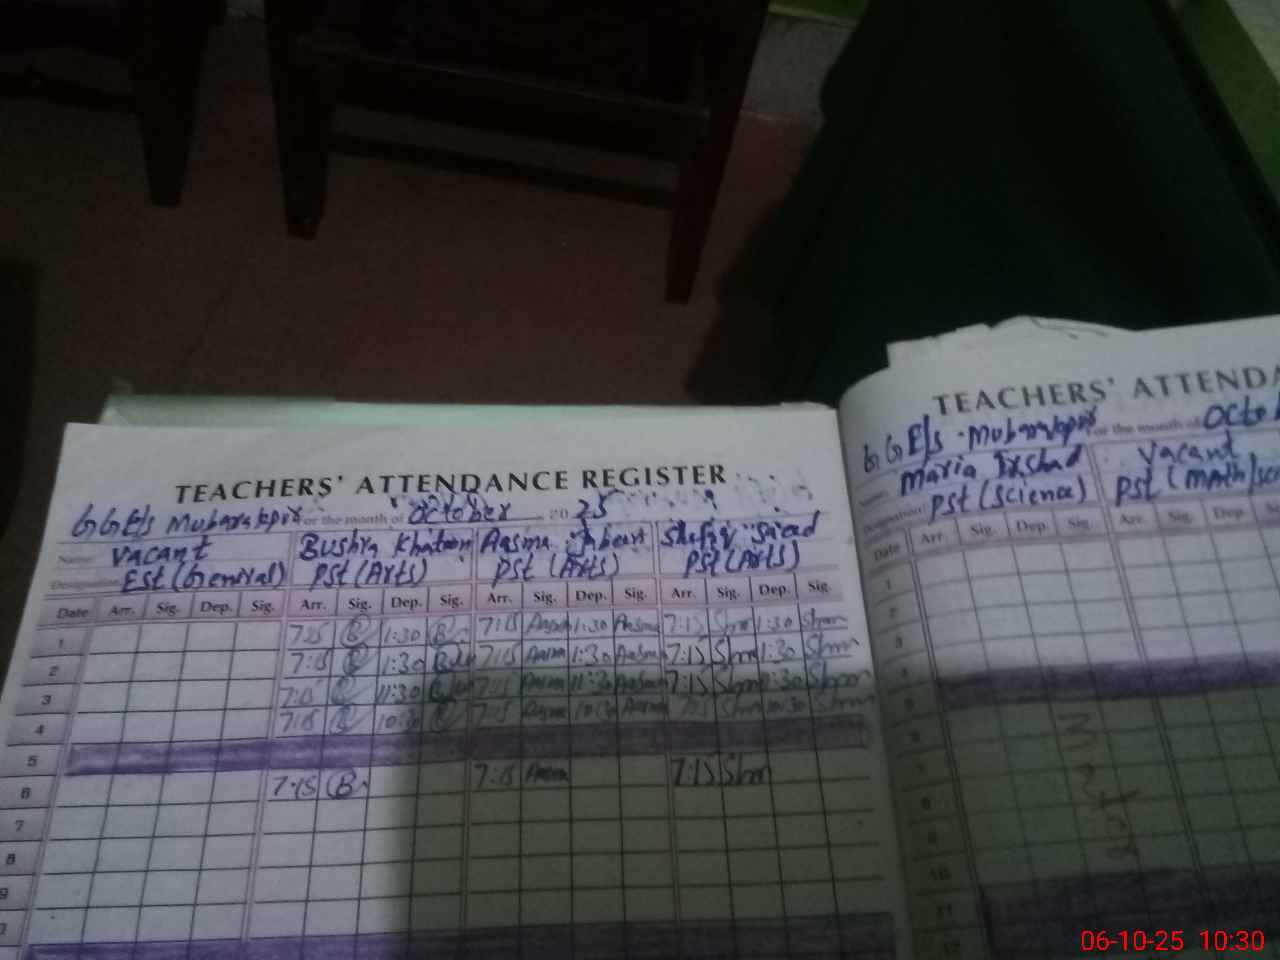 TEACHERS' ATTENDANCE REGISTER
GGE/S Mubarakpur for the month of October 20 25
Name Vacant Bushra Khatoon Aasma Jabeen Shafiq Saeed
Designation Est (General) PST (Arts) PST (Arts) PST (Arts)
Date Arr. Sig. Dep. Sig. Arr. Sig. Dep. Sig. Arr. Sig. Dep. Sig. Arr. Sig. Dep. Sig.
1 7:15 B 1:30 B 7:15 Aasma 1:30 Aasma 7:15 1:30
2 7:15 B 1:30 7:15 Aasma 1:30 Aasma 7:15 1:30
3 7:15 B 11:30 7:15 Aasma 11:30 Aasma 7:15 11:30
4 7:15 B 10:30 B 7:15 Aasma 10:30 Aasma 7:15 10:30
5
6 7:15 B 7:15 Aasma 7:15
7
8
9
TEACHERS' ATTENDA
GGE/S Mubarakpur for the month of Octo
Maria Irshad Vacant
Designation PST (Science) PST (Math/Sc
Date Arr. Sig. Dep. Sig. Arr. Sig. Dep.
1
2
3
4
5
8
9
10
11
12
06-10-25 10:30